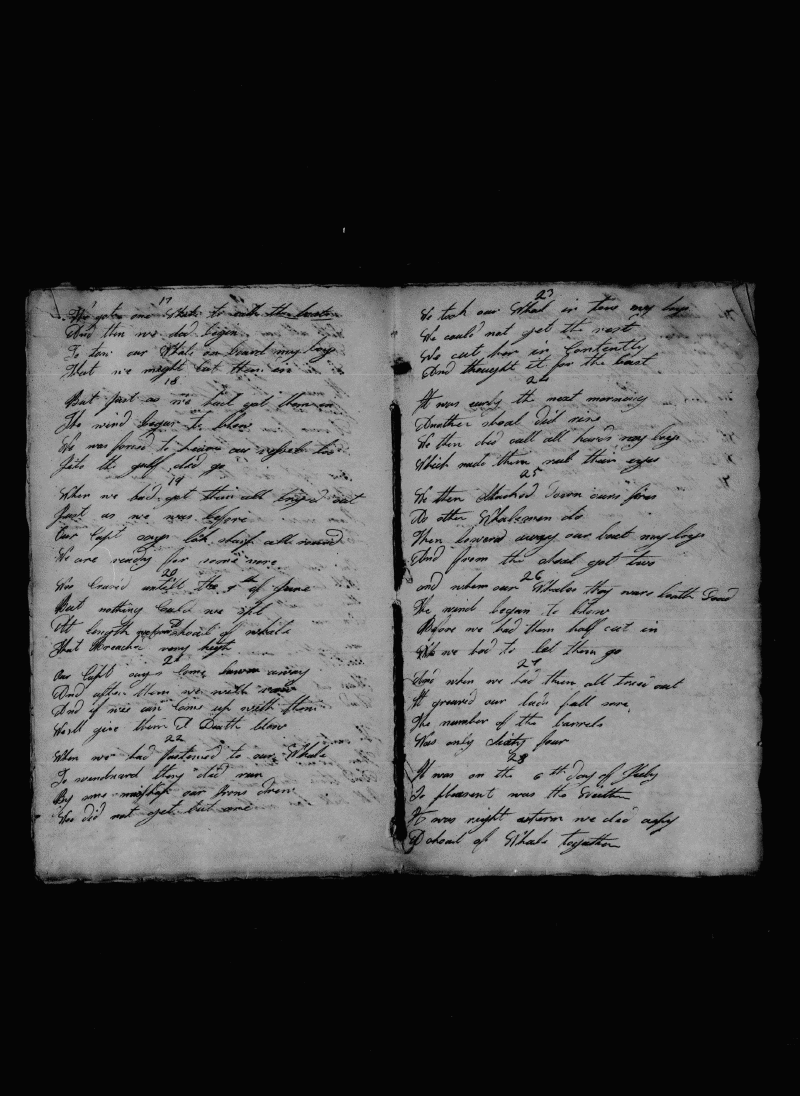 17
We got one Whale to each the boats
And then we did begin
To tow our Whale on board my boys
That we might cut them in
18
But just as we had got them in
The wind began to blow
We was forced to heave our vessel too
Into the gulf did go
19
When we had got them all tryed out
Just as we was before
Our Capt says look sharp all round
We are ready for some more
20
We cruised untill the th of June
But nothing Could we spy
At length shoal of whale
That Breached very high
21
Our Capt says Come lower away
And after them we with row
And if wee can Come up with them
We'll give them A Death blow
22
When we had fastened to our Whale
To windward they did run
By our irons drew
We did not get but one
23
We took our Whale in tow my boys
We could not get the rest
We cut her in Contently
And thought it for the best
24
It was early the next morning
Another shoal did rise
We then did call all hands my boys
Which made them rub their eyes
25
We then Down ours
As other Whalemen do
Then lowered away our boat my boys
And from the shoal got two
26
and when our Whales they were boath Dead
The wind began to blow
Before we had them half cut in
We had to let them go
27
And when we had them all tried out
It greaved our lads full sore
The number of the barrels
Was only sixty four
28
It was on the 6 th day of July
So pleasent was the Weather
It was right astern we did aspy
A shoal of Whale together